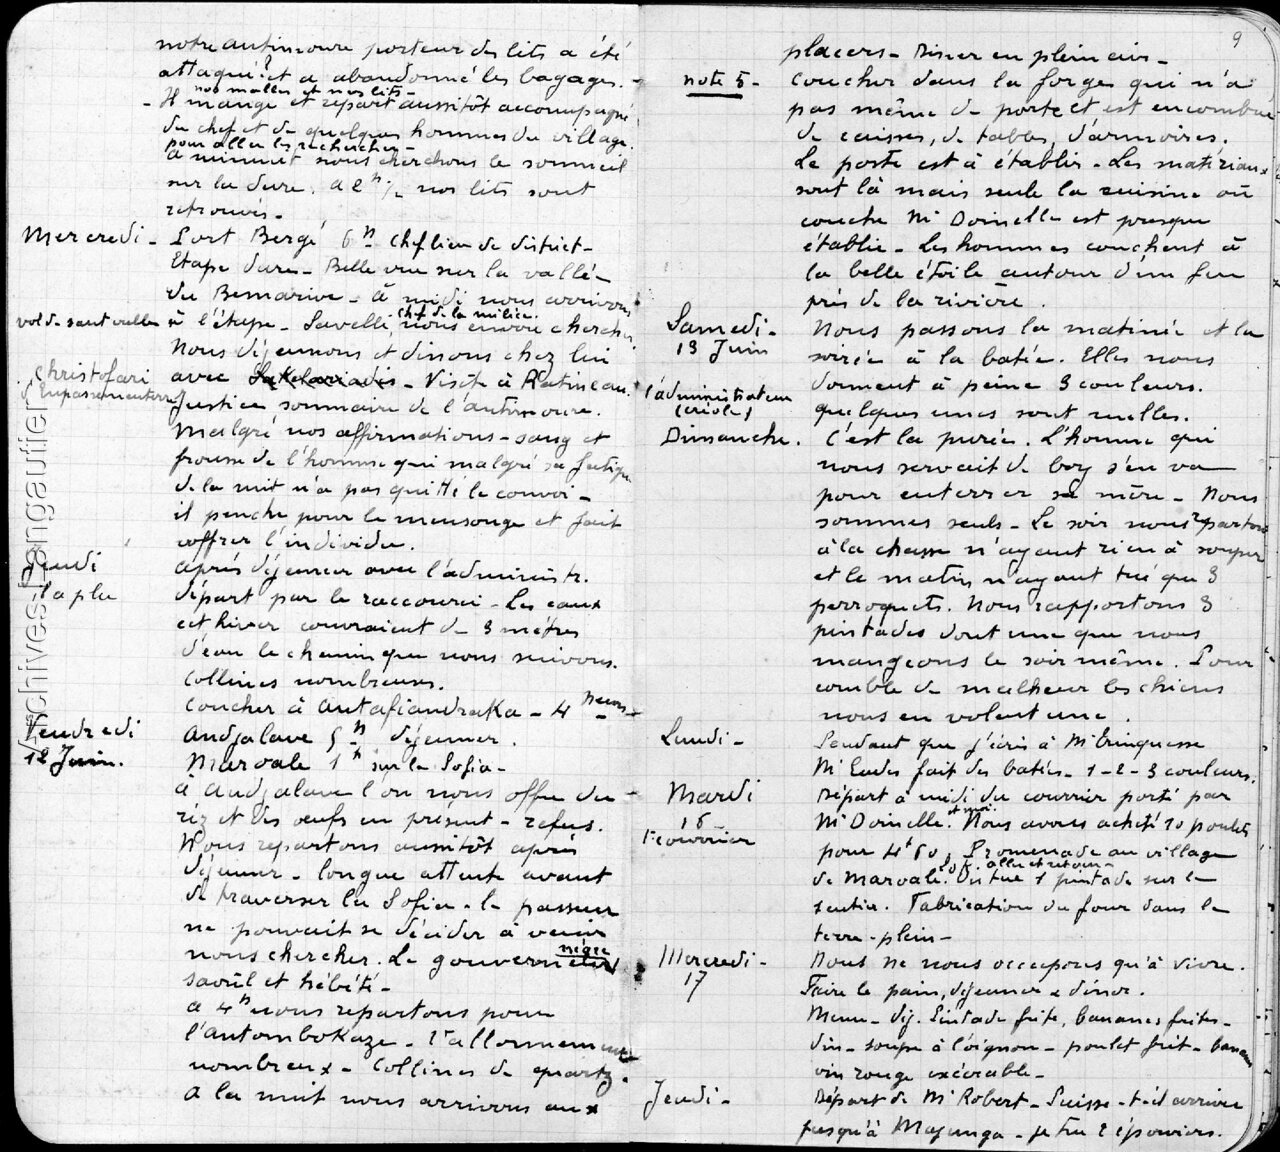 notre antimoure porteur des lits a été
attaqué ? et a abandonné les bagages.
nos malles et nos lits -
- Il mange et repart aussitôt accompagné
du chef et de quelques hommes du village.
pour aller les rechercher -
à minuit nous cherchons le sommeil
sur la dure. à 2 h ½ nos lits sont
retrouvés -
Mercredi - Port Bergé 6 h chef lieu de district -
Etape dure - Belle vue sur la vallée
du Bemarivo - à midi nous arrivons
chef de la milice.
à l'étape - Savelli, nous envoie chercher
Nous déjeunons et dinons chez lui
Christofari
avec - Visite à Ratineau.
Justice sommaire de l'antimoure.
Malgré nos affirmations - sang et
frousse de l'homme qui malgré sa fatigue
de la nuit n'a pas quitté le convoi -
il penche pour le mensonge et fait
coffrer l'individu.
Jeudi après déjeuner avec l'administr.
départ par le raccourci - Les eaux
cet hiver couvraient de 3 mètres
d'eau le chemin que nous suivons.
Collines nombreuses.
Coucher à Antafiandraka - 4 heures -
Vendredi Andjalave 5 h déjeuner.
12 Juin. Marvale 1 h sur la Sofia -
à Andjalave l'on nous offre du
riz et des oeufs en présent - refus.
Nous repartons aussitôt après
déjeuner - longue attente avant
de traverser la Sofia - le passeur
ne pouvait se décider à venir
nègre
nous chercher. Le gouverneur
saoûl et hébété -
à 4 h nous repartons pour
l'Antombokaze -
nombreux - Collines de quartz.
A la nuit nous arrivons aux
9
placers - Diner en plein air -
note 5 - coucher dans la forge qui n'a
pas même de porte et est encombrée
de caisses, de tables, d'armoires.
Le poste est à établir - Les matériaux
sont là mais seule la cuisine où
couche Mr Doinelle est presque
établie - Les hommes couchent à
la belle étoile autour d'un feu
près de la rivière.
Samedi - Nous passons la matinée et la
13 Juin soirée à la batée. Elles nous
donnent à peine 3 couleurs.
l'administrateur
(créole) quelques unes sont nulles.
Dimanche. C'est la purée. L'homme qui
nous servait de boy s'en va
pour enterrer sa mère - Nous
sommes seuls - Le soir nous repartons
à la chasse n'ayant rien à souper
et le matin n'ayant tué que 3
perroquets. Nous rapportons 3
pintades dont une que nous
mangeons le soir même. Pour
comble de malheur les chiens
nous en volent une.
Lundi - Pendant que j'écris à Mr
Mr Eudes fait des batées - 1 - 2 - 3 couleurs.
Mardi Départ à midi du courrier porté par
16 et moi.
Mr Doinelle. Nous avons acheté 10 poulets
pour 4 f 60. Promenade au village
aller et retour -
de Marvale. On tue 1 pintade sur le
sentier. Fabrication du four dans le
terre-plein -
Mercredi - Nous ne nous occupons qu'à vivre.
17 Faire le pain, déjeuner & dîner.
Menu - déj. Pintade frite, bananes frites -
din - soupe à l'oignon - poulet frit - banane
vin rouge exécrable -
Jeudi - Départ de Mr Robert - Suisse - t-il arriver
jusqu'à Majunga - je tue 2 éperviers.
Archives Langautier